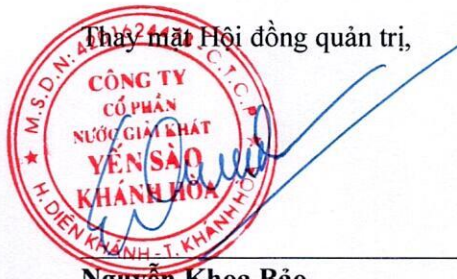 Thay mặt Hội đồng quản trị,
M.S.D.N: C.T.C.P
CÔNG TY
CỔ PHẦN
NƯỚC GIẢI KHÁT
YẾN SÀO
KHÁNH HÒA
H. DIÊN KHÁNH - T. KHÁNH HÒA
Nguyễn Khoa Bảo